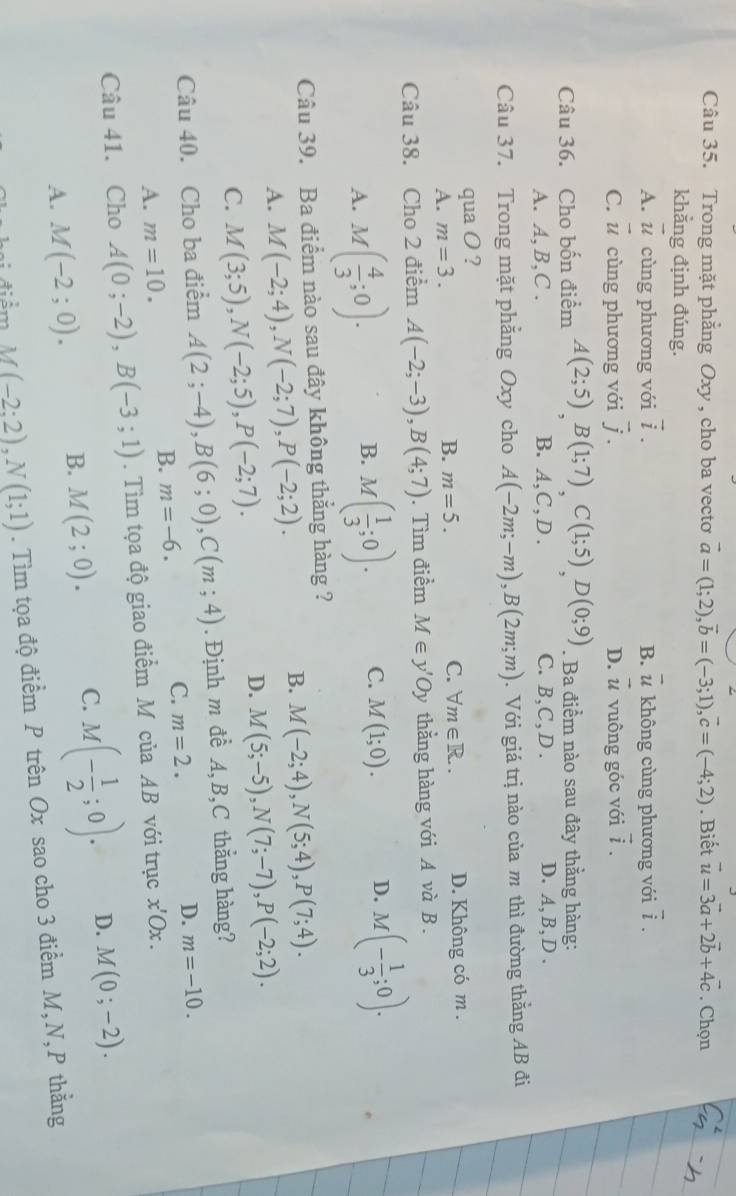 Câu 35. Trong mặt phẳng Oxy, cho ba vectơ a⃗ = (1;2), b⃗ = (-3;1), c⃗ = (-4;2). Biết u⃗ = 3a⃗ + 2b⃗ + 4c⃗. Chọn
khẳng định đúng.
A. u⃗ cùng phương với i⃗. B. u⃗ không cùng phương với i⃗.
C. u⃗ cùng phương với j⃗. D. u⃗ vuông góc với i⃗.
Câu 36. Cho bốn điểm A(2;5), B(1;7), C(1;5), D(0;9). Ba điểm nào sau đây thẳng hàng:
A. A,B,C. B. A,C,D. C. B,C,D. D. A,B,D.
Câu 37. Trong mặt phẳng Oxy cho A(-2m;-m), B(2m;m). Với giá trị nào của m thì đường thẳng AB đi
qua O ?
A. m = 3. B. m = 5. C. ∀m ∈ ℝ. D. Không có m.
Câu 38. Cho 2 điểm A(-2;-3), B(4;7). Tìm điểm M ∈ y'Oy thẳng hàng với A và B.
A. M(4/3;0). B. M(1/3;0). C. M(1;0). D. M(-1/3;0).
Câu 39. Ba điểm nào sau đây không thẳng hàng ?
A. M(-2;4), N(-2;7), P(-2;2). B. M(-2;4), N(5;4), P(7;4).
C. M(3;5), N(-2;5), P(-2;7). D. M(5;-5), N(7;-7), P(-2;2).
Câu 40. Cho ba điểm A(2;-4), B(6;0), C(m;4). Định m để A,B,C thẳng hàng?
A. m = 10. B. m = -6. C. m = 2. D. m = -10.
Câu 41. Cho A(0;-2), B(-3;1). Tìm tọa độ giao điểm M của AB với trục x'Ox.
A. M(-2;0). B. M(2;0). C. M(-1/2;0). D. M(0;-2).
điểm M(-2;2), N(1;1). Tìm tọa độ điểm P trên Ox sao cho 3 điểm M,N,P thẳng